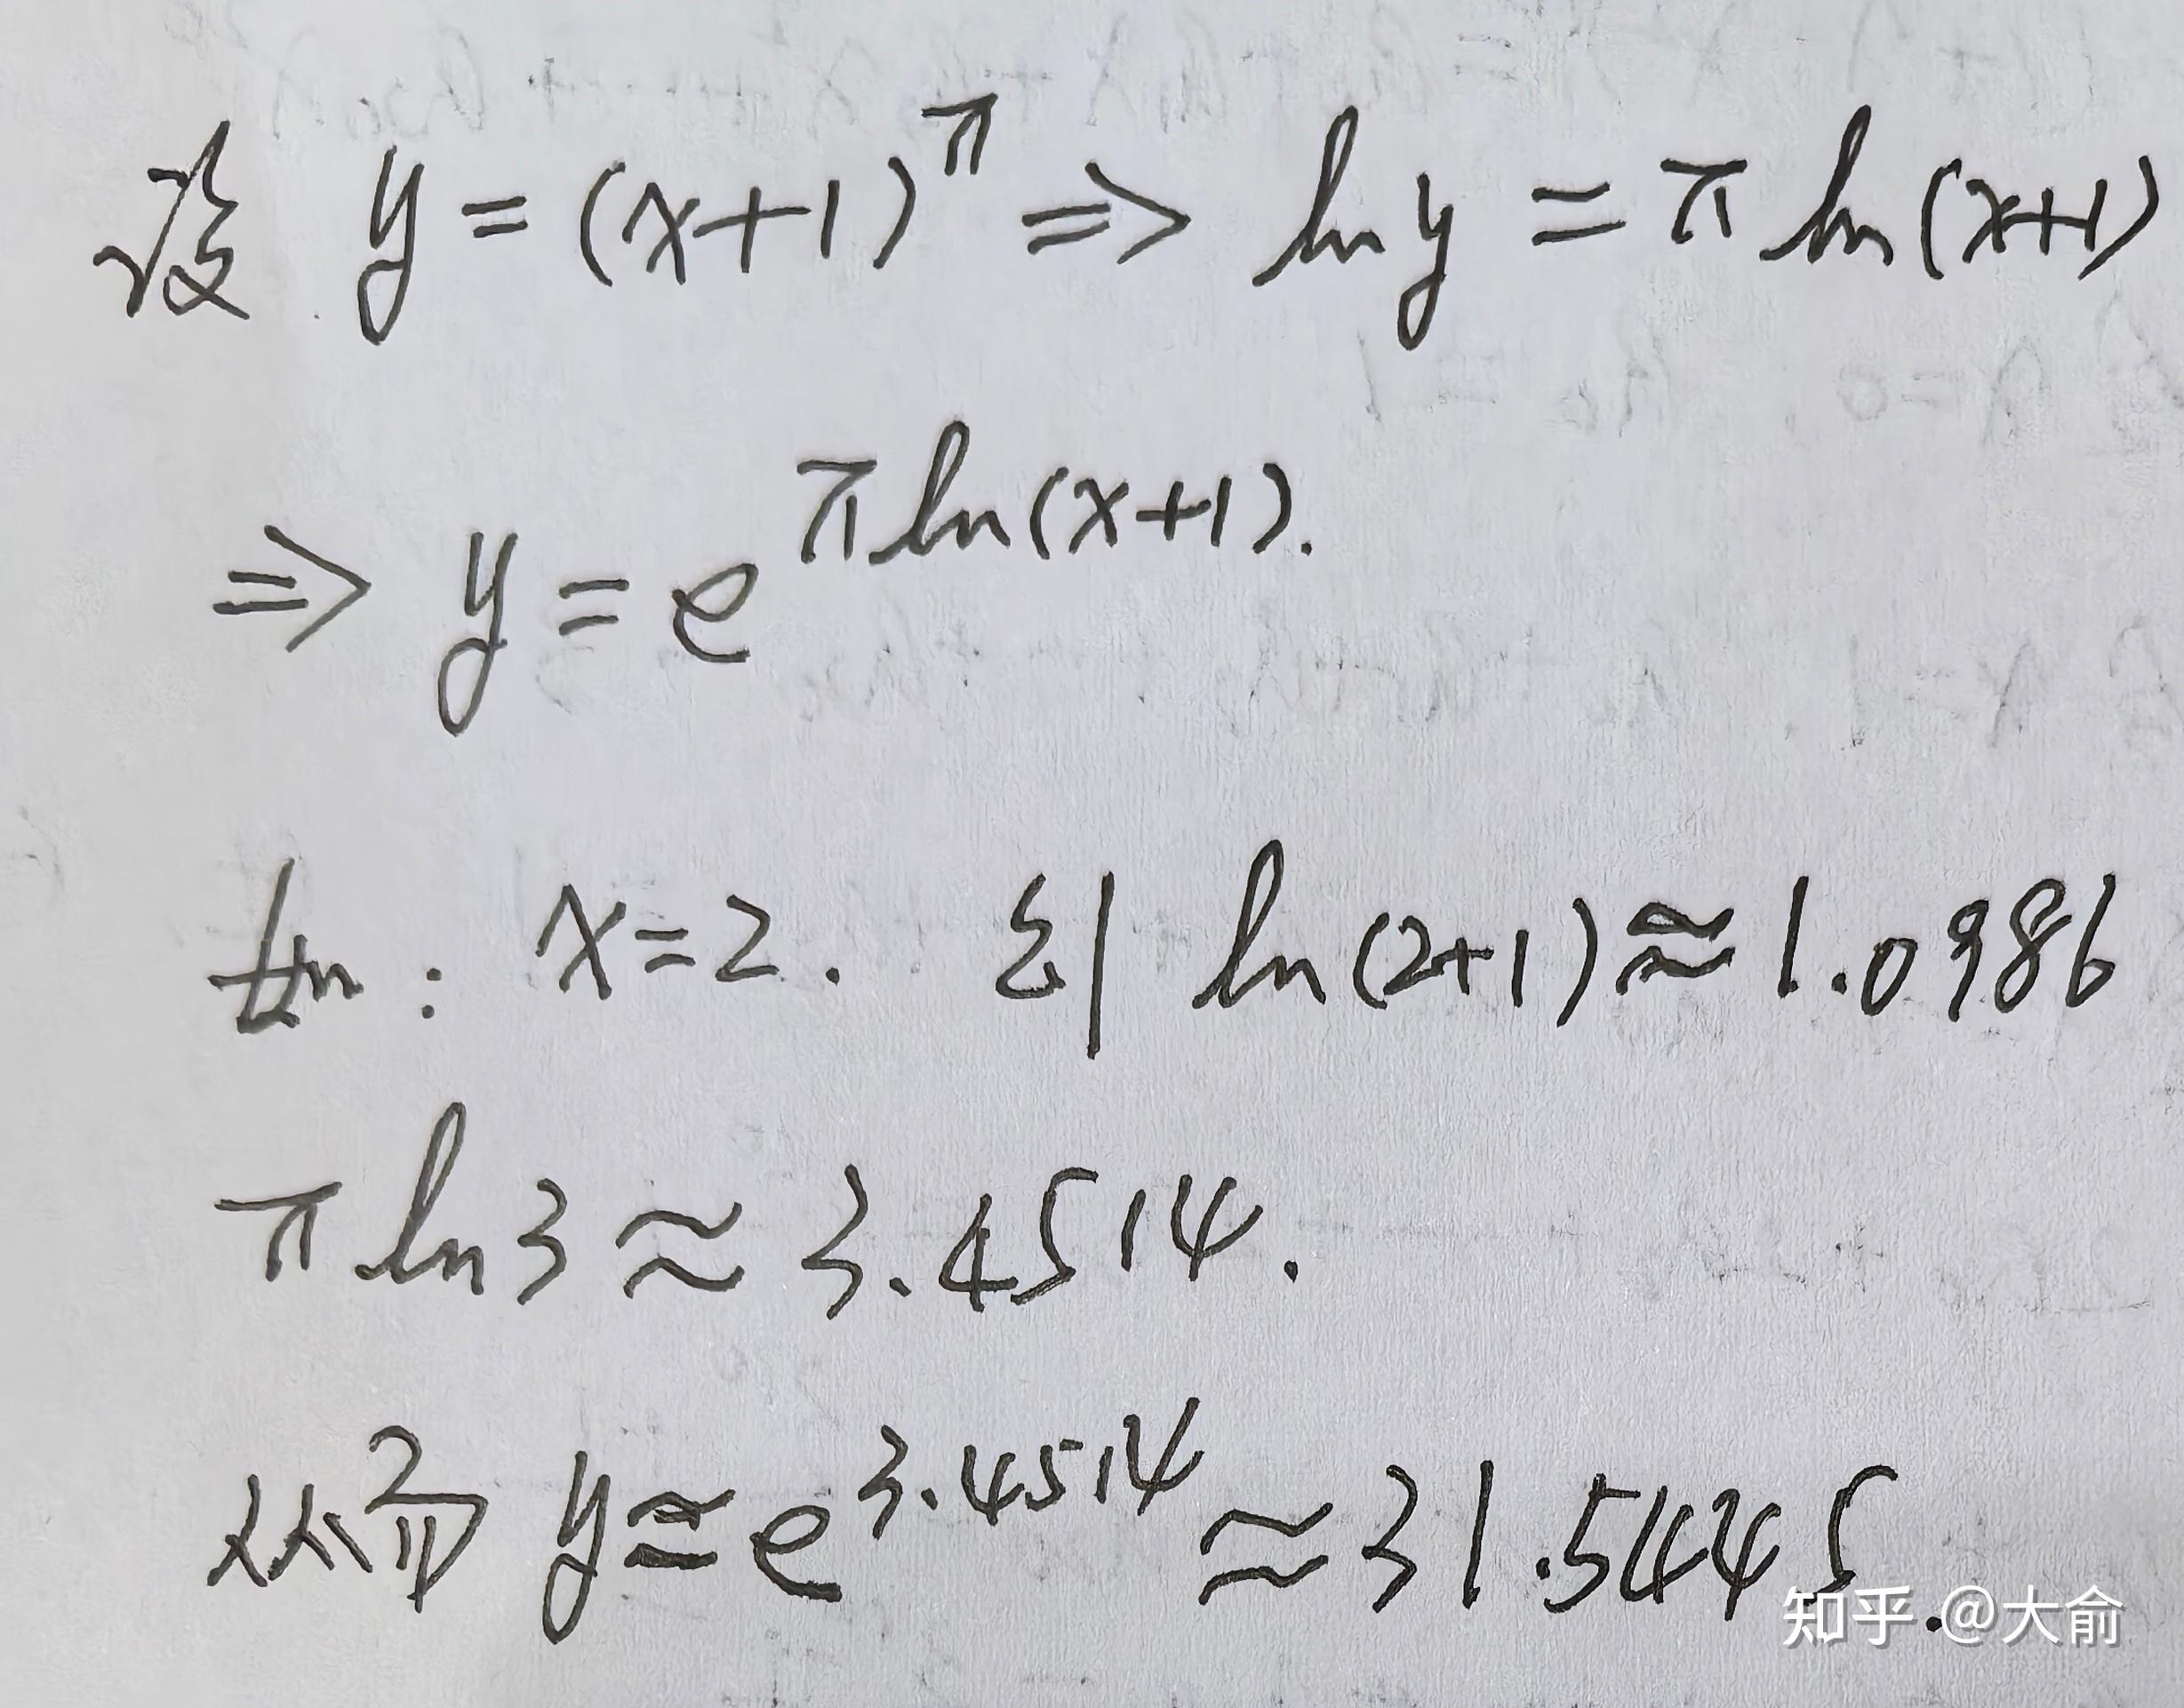 设 y=(x+1)^π ⇒ ln y = π ln(x+1)
⇒ y = e^{π ln(x+1)}.
如: x=2. 则 ln(2+1)≈1.0986
π ln3 ≈ 3.4514.
从而 y≈e^{3.4514} ≈31.5445.
知乎 @大俞